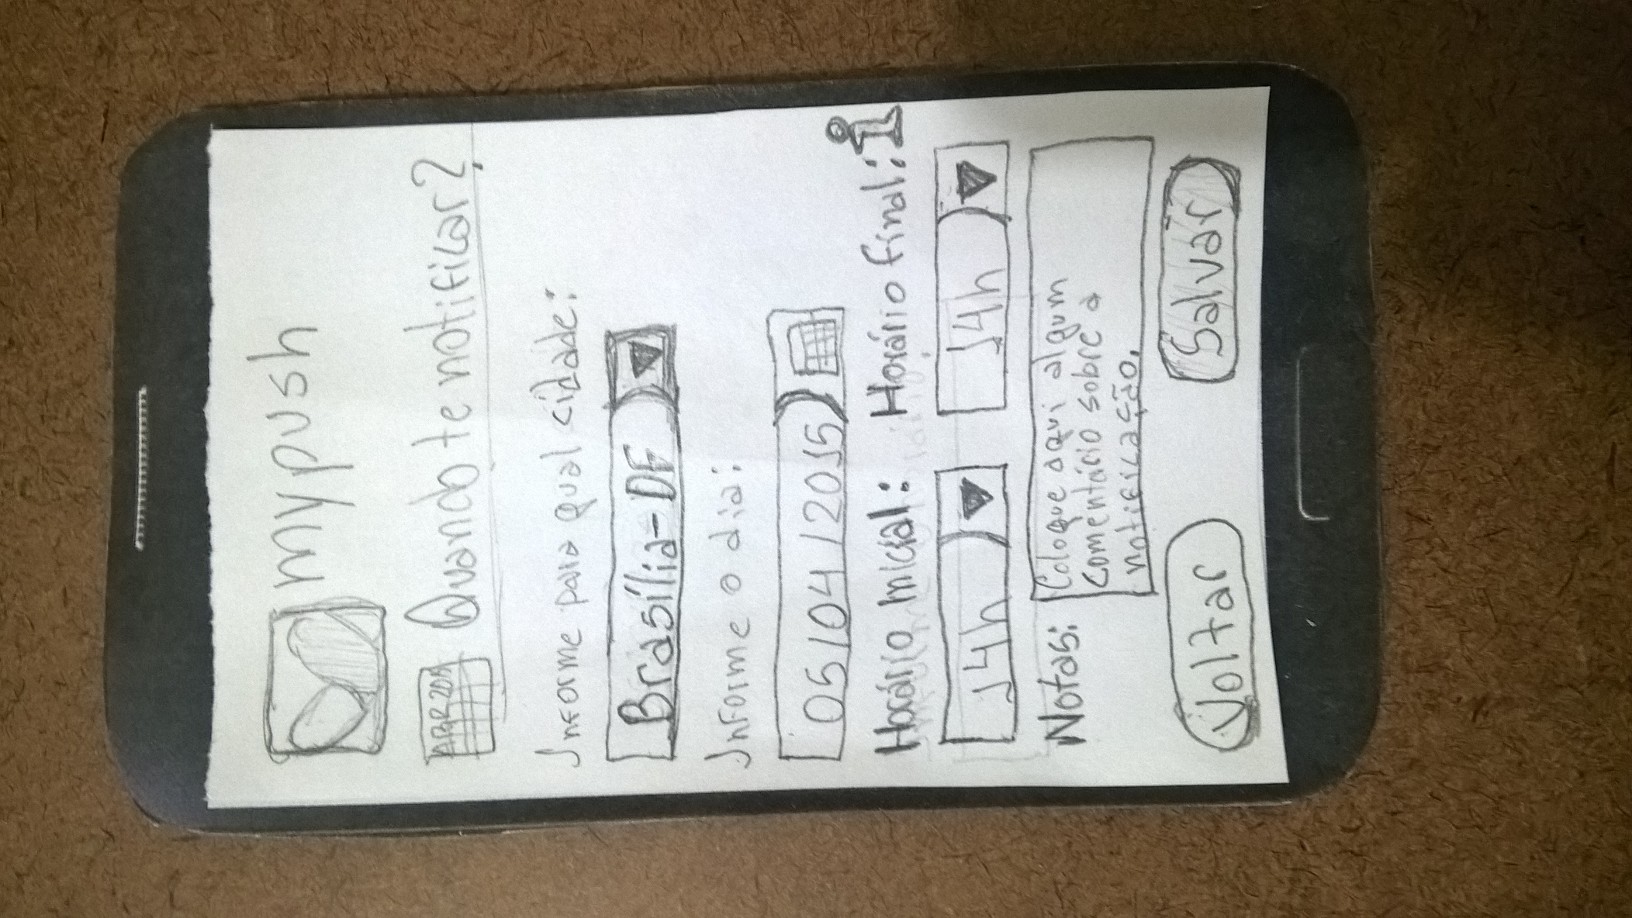 mypush
ABR 2015
Quando te notificar?
Informe para qual cidade:
Brasília-DF
Informe o dia:
05/04/2015
Horário Inicial: Horário final:
14h 14h
Notas: Coloque aqui algum
comentário sobre a
notificação.
Voltar Salvar